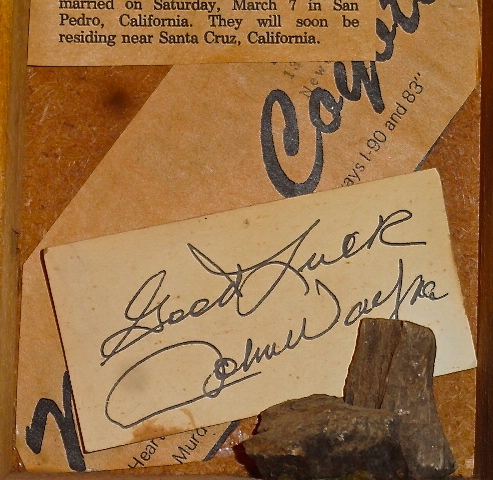 married on Saturday, March 7 in San
Pedro, California. They will soon be
residing near Santa Cruz, California.
ays I-90 and 83"
Good Luck
John Wayne
Heart
Murd